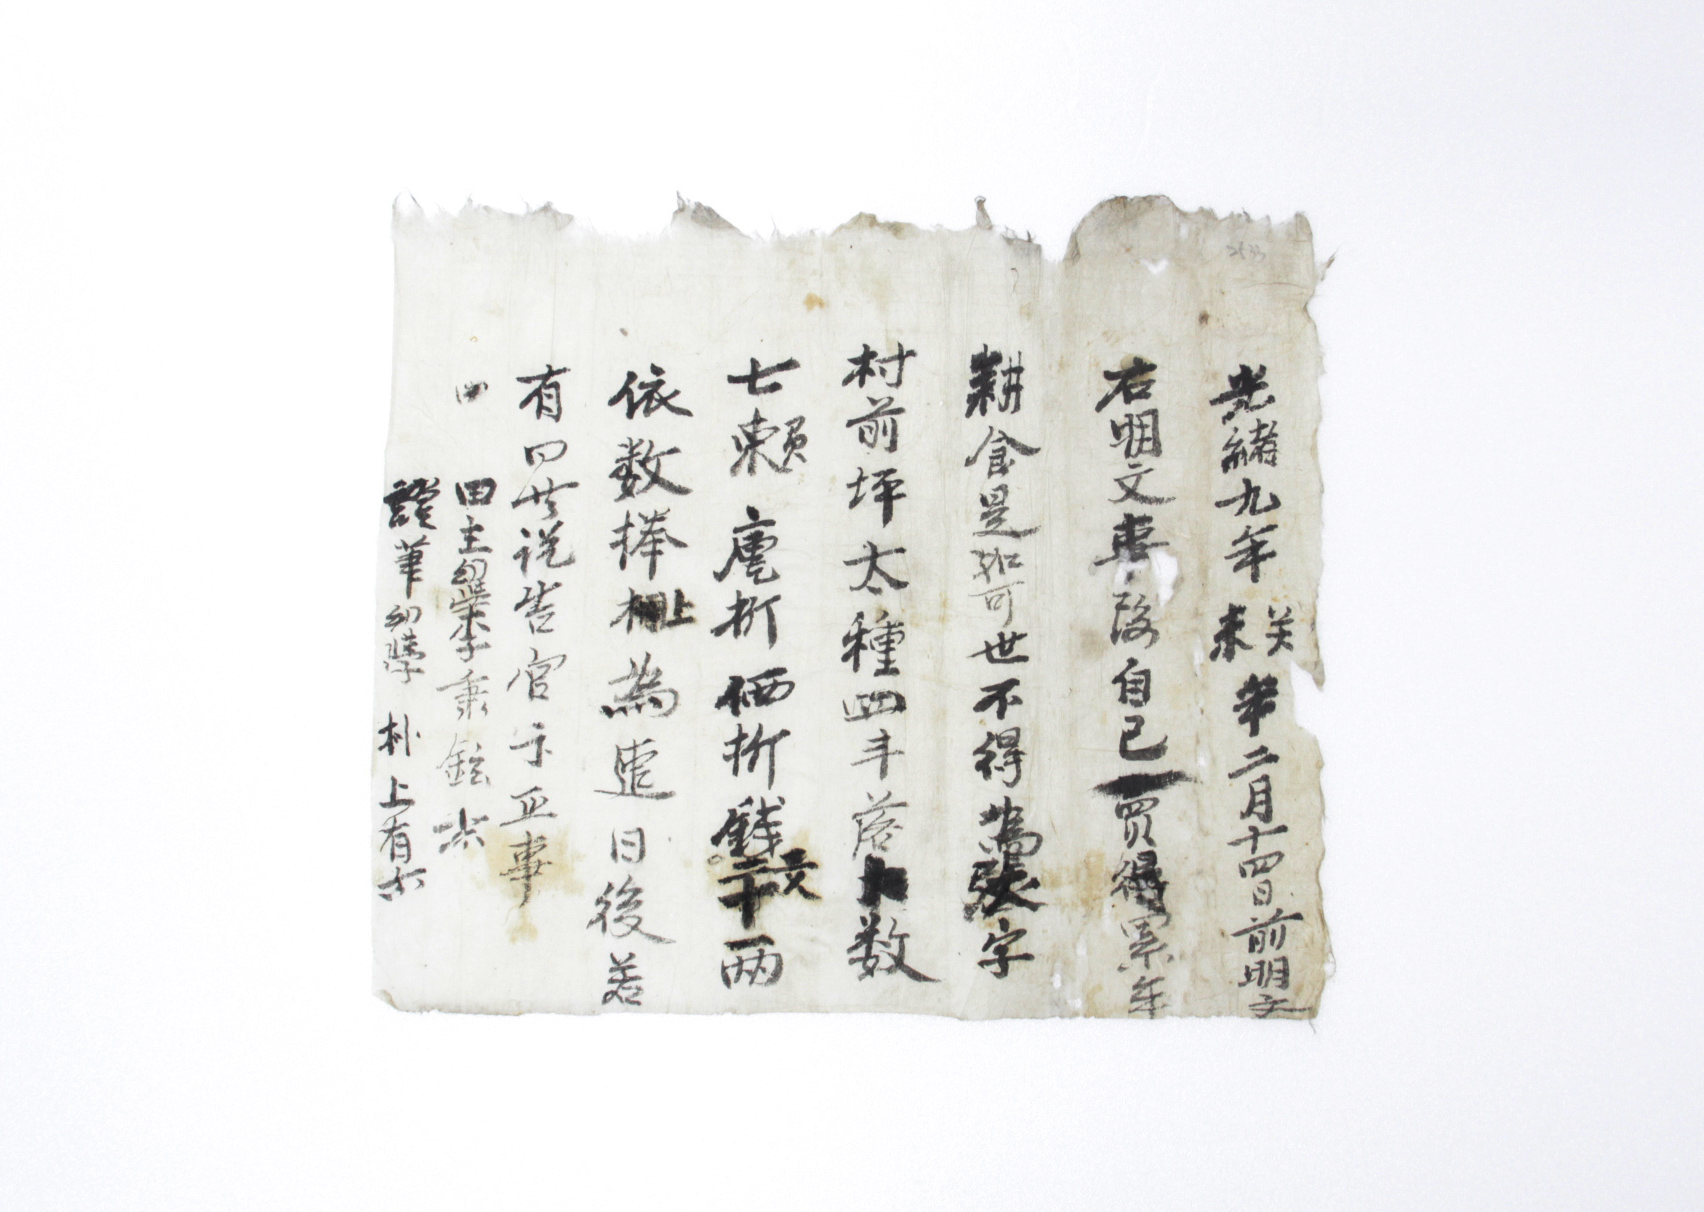 光緖九年癸未年二月十四日前明文
右明文事段自己買得累年
耕食是如可世不得為張字
村前坪太種四斗落数
七賴廤折価折錢文二十两
依数捧上為遣日後若
有四此説告官卞正事
田主幼學李秉鉉
證筆幼學 朴上有